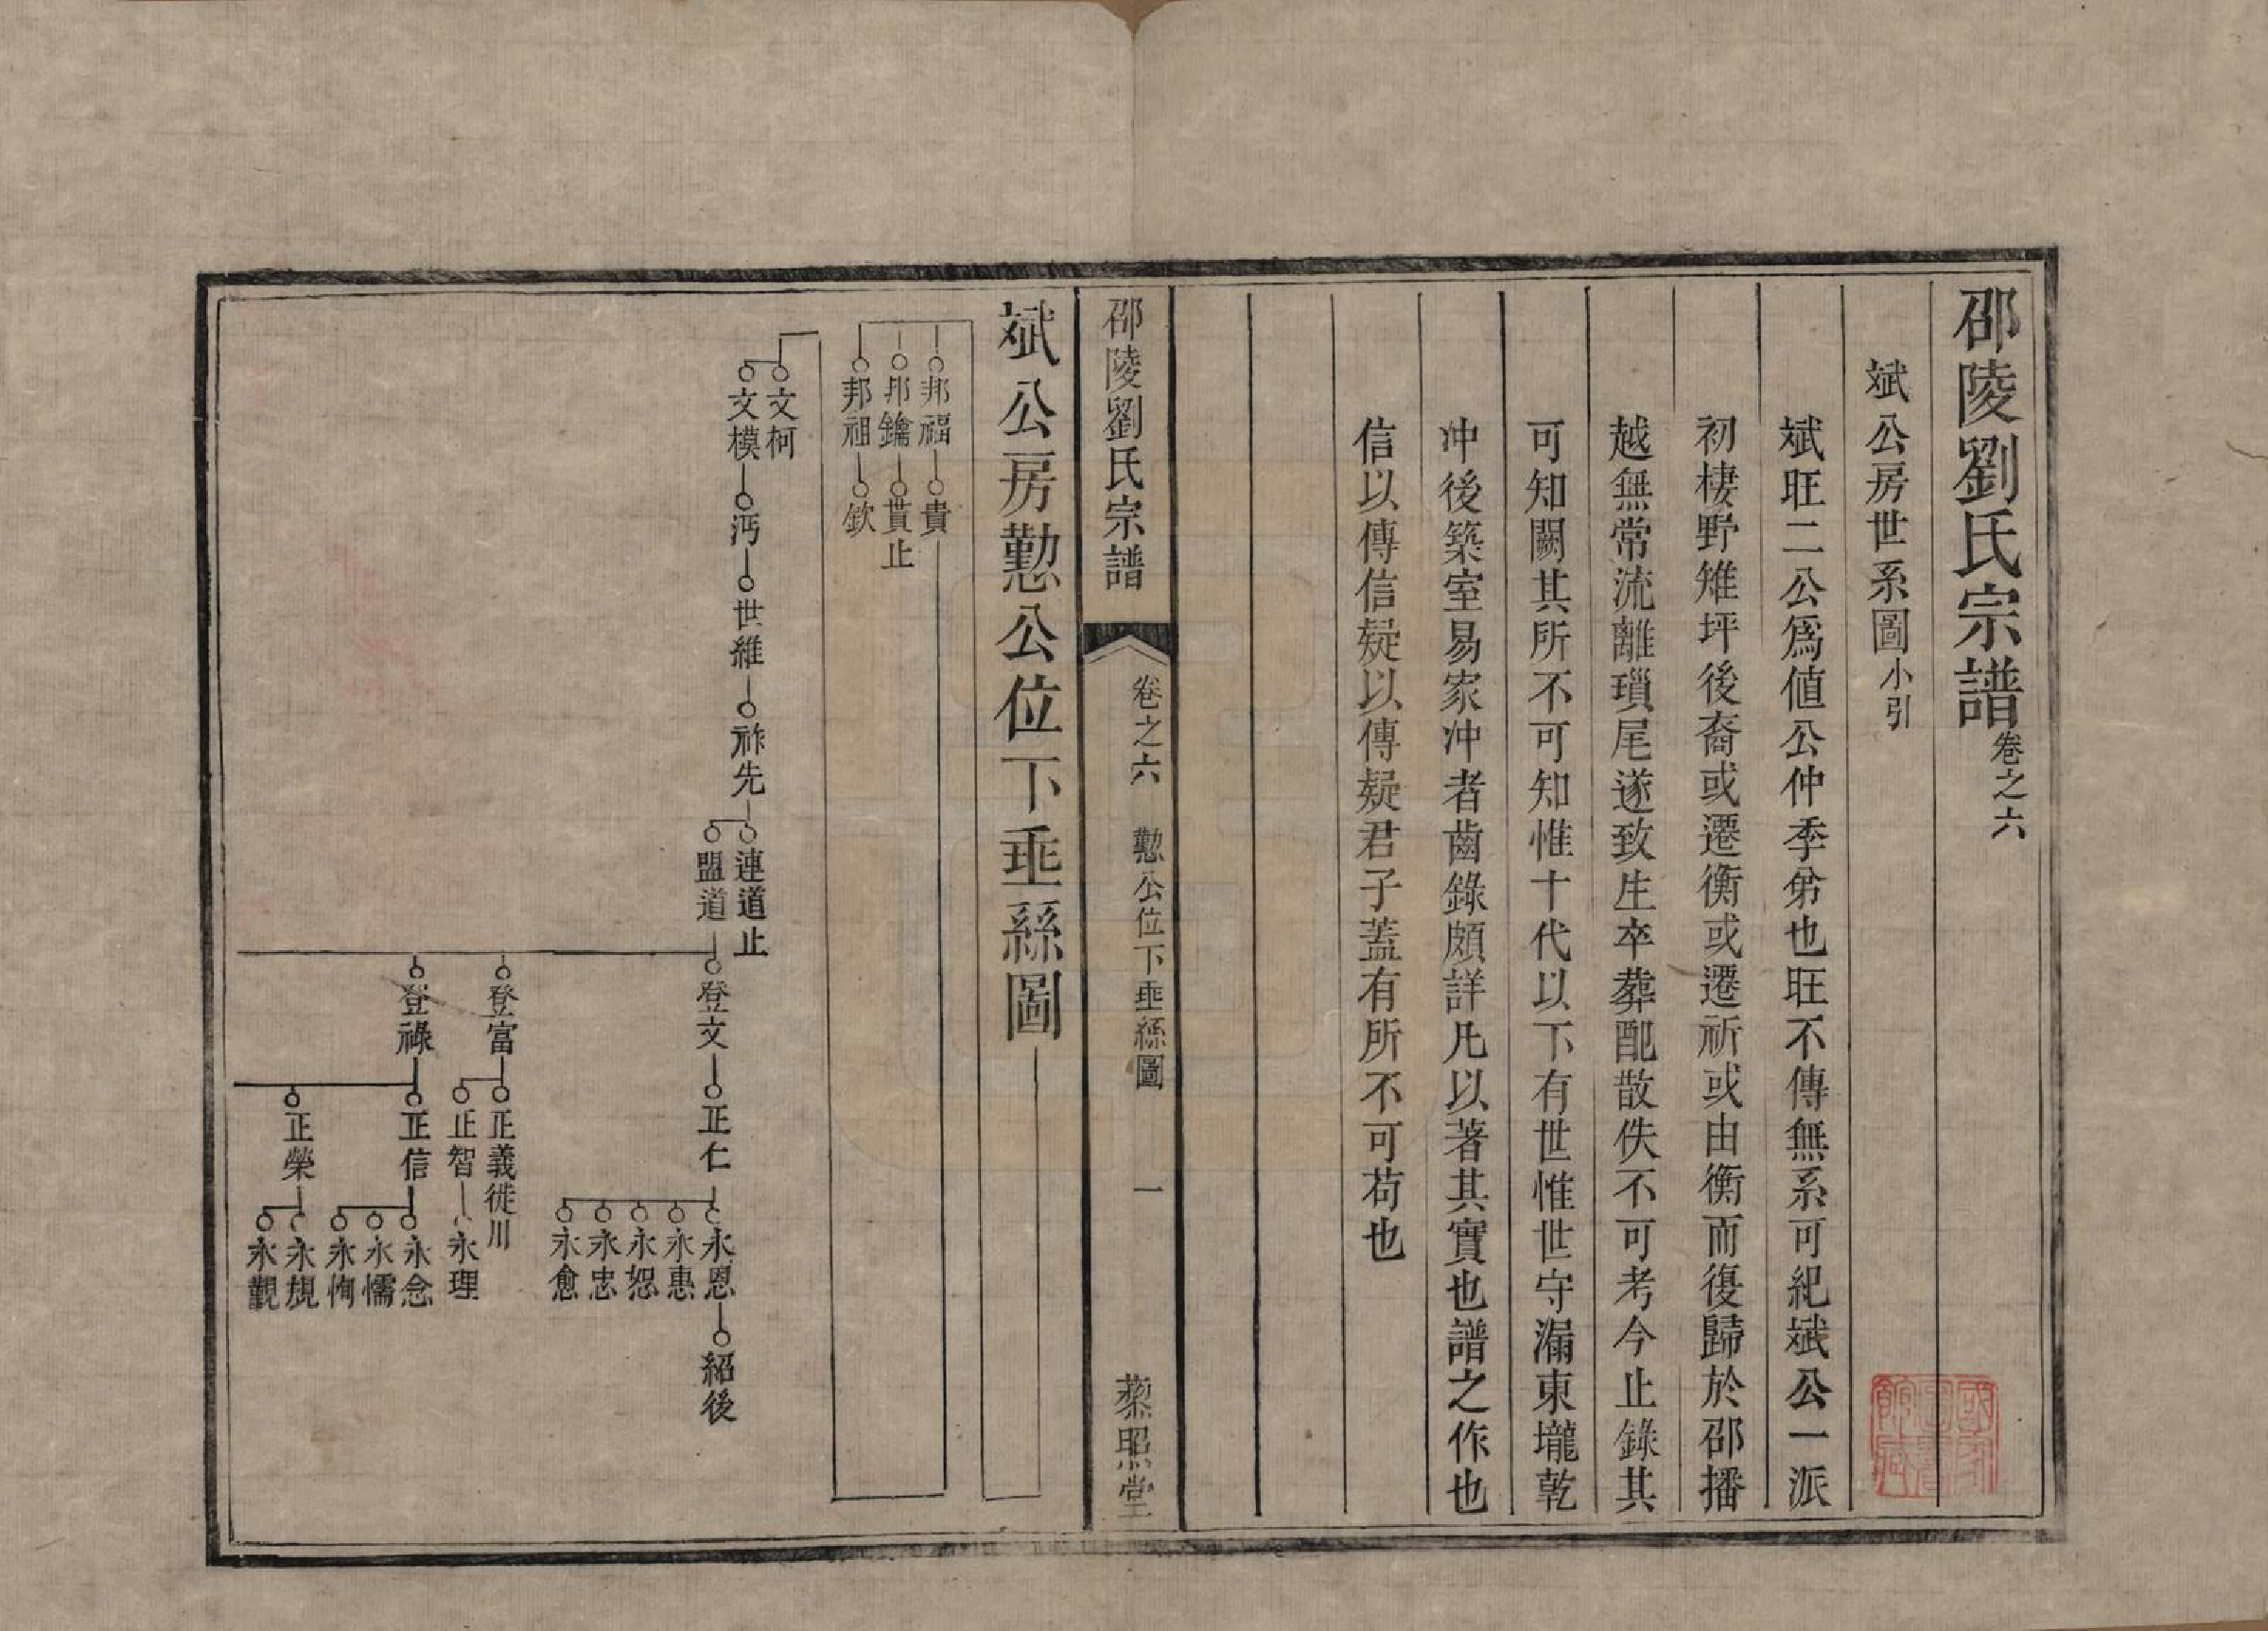 邵陵劉氏宗譜卷之六
斌公房世系圖小引
斌旺二公爲値公仲季弟也旺不傳無系可紀斌公一派
初棲野雉坪後裔或遷衡或遷祈或由衡而復歸於邵播
越無常流離瑣尾遂致生卒葬配散佚不可考今止錄其
可知闕其所不可知惟十代以下有世惟世守漏東壠乾
冲後築室易家冲者齒錄頗詳凡以著其實也譜之作也
信以傳信疑以傳疑君子蓋有所不可苟也
邵陵劉氏宗譜
卷之六
懃公位下垂絲圖
一
藜照堂
斌公房懃公位下垂絲圖
邦福
貴
邦鑰
貰止
邦祖
欽
文柯
文模
沔
世維
祚先
連道止
盟道
登文
正仁
永恩
紹後
永惠
永恕
永忠
永愈
登富
正義徙川
正智
永理
登祿
正信
永念
永懦
永恂
正榮
永覬
永觀